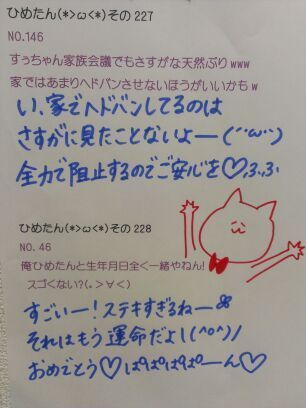 ひめたん(*>ω<*)その227
NO.146
すぅちゃん家族会議でもさすがな天然ぷりwww
家ではあまりヘドバンさせないほうがいいかもw
い、家でヘドバンしてるのは
さすがに見たことないよー(´˘ω˘)
全力で阻止するのでご安心を♡ふふ
ひめたん(*>ω<*)その228
NO.46
俺ひめたんと生年月日全く一緒やねん!
スゴくない?(。>∀<)
すごいー!ステキすぎるねー
それはもう運命だよ!(^o^)/
おめでとう♡ぱぱぱぱーん♡